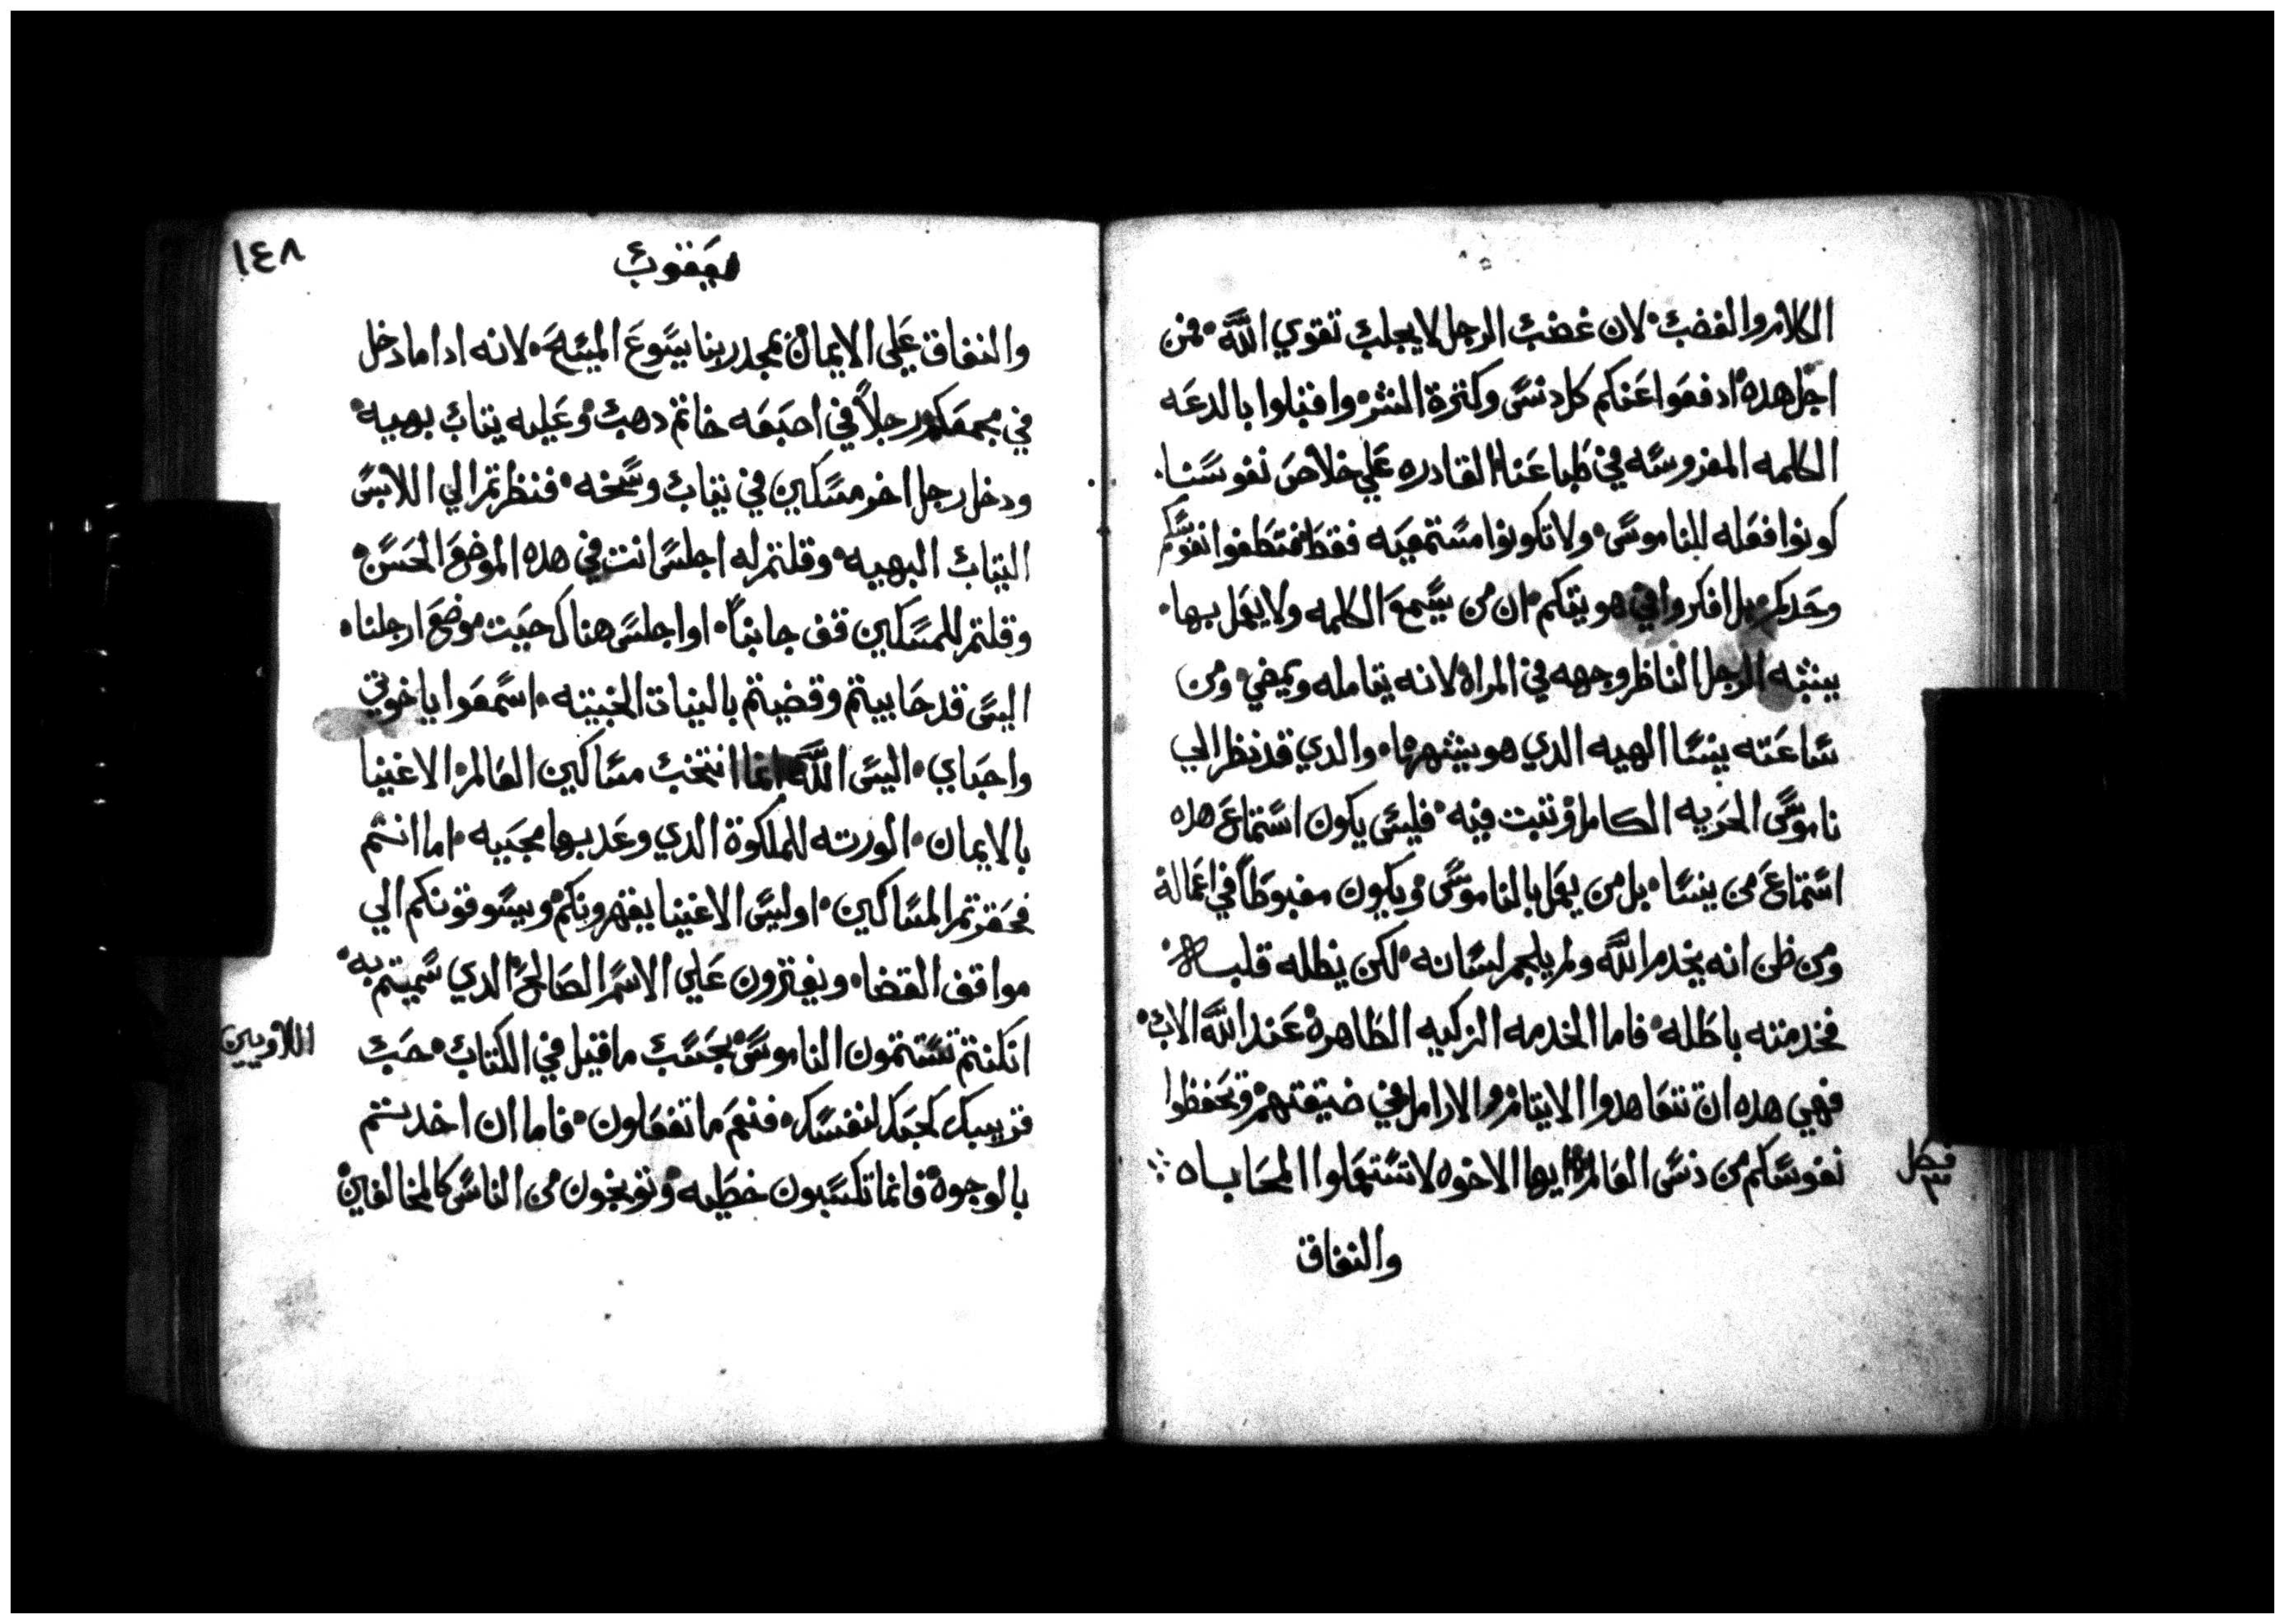 الكلام والغضب لان غضب الرجل لا يجلب تقوي الله فمن
اجل هده ادفعوا عنكم كل دنس وكترة الشر واقبلوا بالدعه
الكلمه المغروسه في طباعنا القادره علي خلاص نفوسنا
كونوا فعله للناموس ولا تكونوا مستمعيه فقط فتطغوا نفوسكم
وحدكم بل افكروا في هويتكم ان من يسمع الكلمه ولا يعمل بها
يشبه الرجل الناظر وجهه في المراه لانه يتامله ويمضي ومن
ساعته ينسا الهيه الدي هو يشهرها والدي قد نظر الي
ناموس الحريه الكامل وتبت فيه فليس يكون استماع هده
استماع من ينسا بل من يعمل بالناموس ويكون مغبوطاً في اعماله
ومن ظن انه يخدم الله ولم يلجم لسانه لكن يطله قلبه
فخدمته باطله فاما الخدمه الزكيه الطاهرة عند الله الاب
فهي هده ان تتعاهدوا الايتام والارامل في ضيقتهم وتحفظوا
نفوسكم من دنس العالم ايها الاخوه لا تستعملوا المحاباه
فصل
والنفاق
١٤٨
يعقوب
والنفاق علي الايمان بمجد ربنا يسوع المسيح لانه ادا ما دخل
في مجمعكم رجلاً في اصبعه خاتم دهب وعليه تياب بهيه
ودخل رجل اخر مسكين في تياب وسخه فنظرتم الي اللابس
التياب البهيه وقلتم له اجلس انت في هده الموضع الحسن
وقلتم للمسكين قف جانباً او اجلس هناك حيت موضع ارجلنا
اليس قد حابيتم وقضيتم بالنيات الخبيته اسمعوا ياخوتي
واحباي اليس الله انما انتخب مساكين العالم الاغنيا
بالايمان الورته للملكوة الدي وعد بها محبيه اما انتم
فحقرتم المساكين اوليس الاغنيا يقهرونكم ويسوقونكم الي
مواقف القضا ويفترون علي الاسم الصالح الدي سميتم به
ان كنتم تستتمون الناموس بحسب ما قيل في الكتاب حب
اللاويين
قريبك كحبك لنفسك فنعم ما تفعلون فاما ان اخدتم
بالوجوه فانما تكسبون خطيه وتوبخون من الناس كالمخالفين